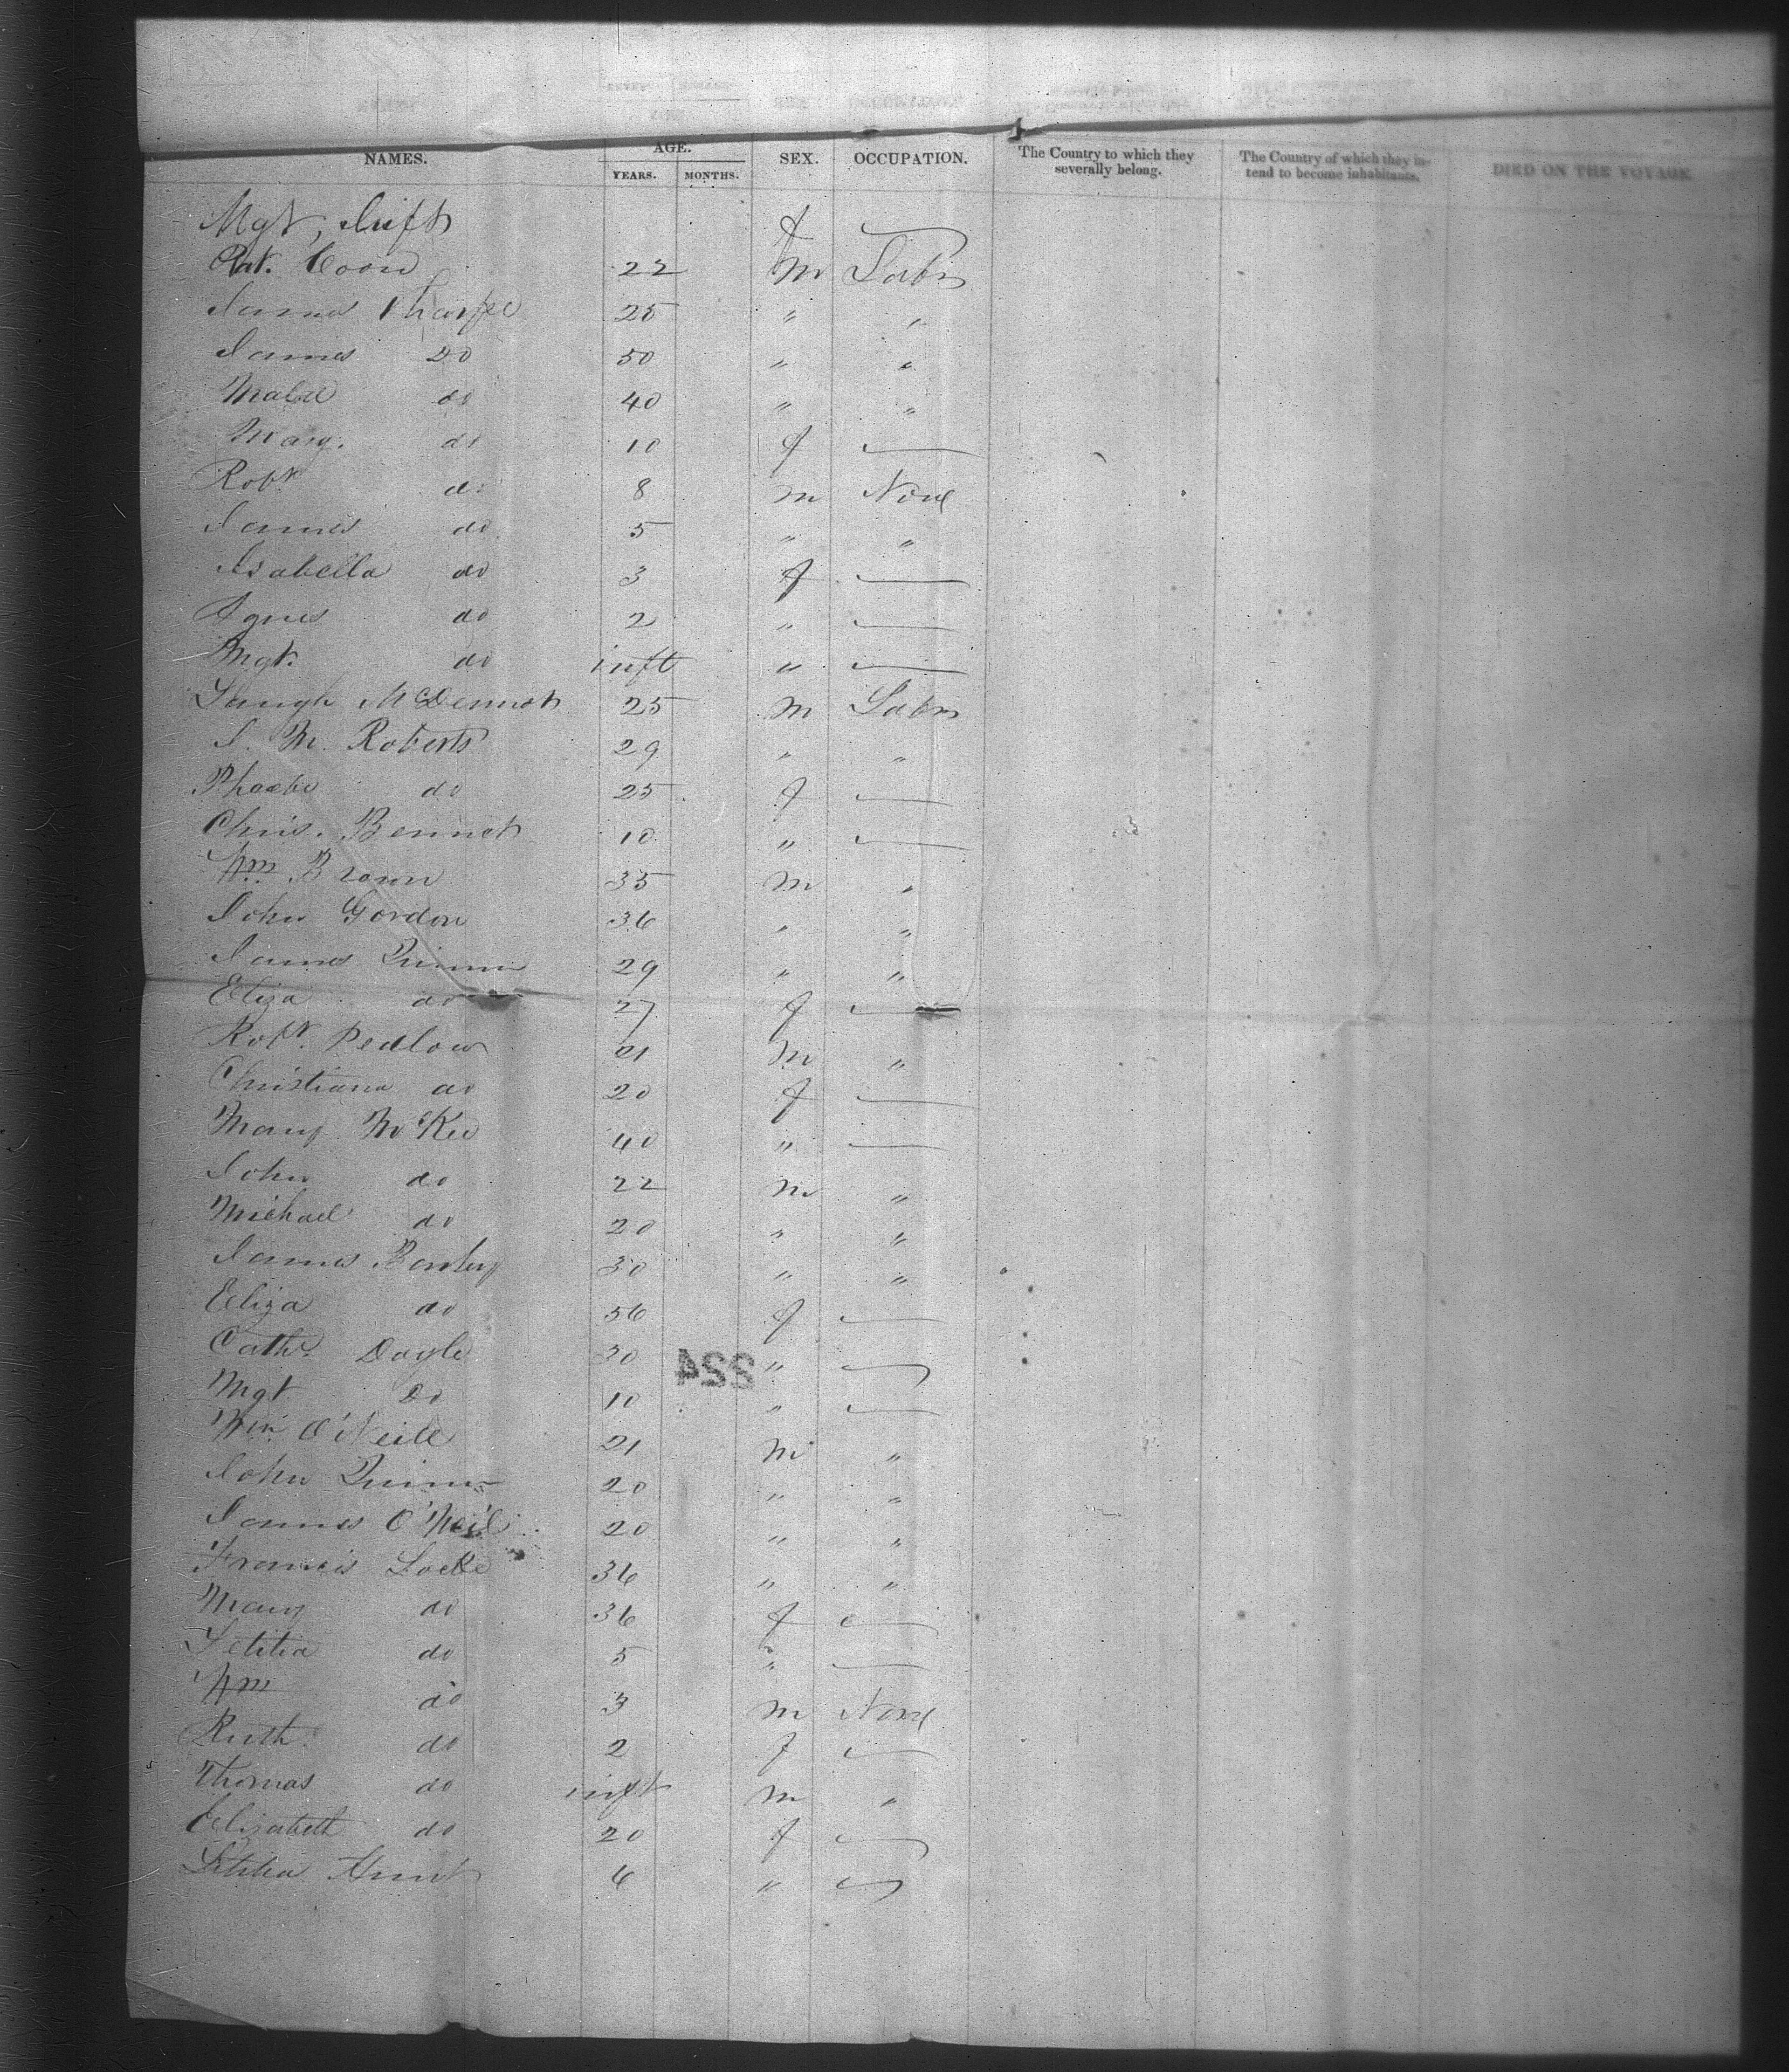 NAMES. AGE. SEX. OCCUPATION. The Country to which they severally belong. The Country of which they intend to become inhabitants. DIED ON THE VOYAGE
YEARS. MONTHS.
Mgt, f
Pat. Coon 22 m Labr
James Tharpe 25 " "
James Do 50 " "
40 " "
Mary. do 10 f
Robt do 8 m None
James do 5 " "
Isabella do 3 f
Agnes do 2 "
Mgt. do inft "
McDermot 25 m Labr
J. M. Roberts 29 " "
Phoebe do 25 f
Chris. Bennet 10 "
Wm Brown 35 m "
John Gordon 36 " "
James Quinn 29 " "
Eliza do 27 f
Robt. Pedlow 21 m "
Christiana do 20 f
Mary McKee 40 "
John do 22 m "
Michael do 20 " "
James 30 " "
Eliza do 56 f
Cathe. Doyle 30 "
324
Mgt Do 10 "
Wm O'Neill 21 m "
John Quinn 20 " "
James O'Neil 20 " "
Francis Locke 36 " "
Mary do 36 f
Letitia do 5 "
Wm do 3 m None
Ruth do 2 f
Thomas do inft m "
Elizabeth do 20 f
Letitia Hunt 6 "